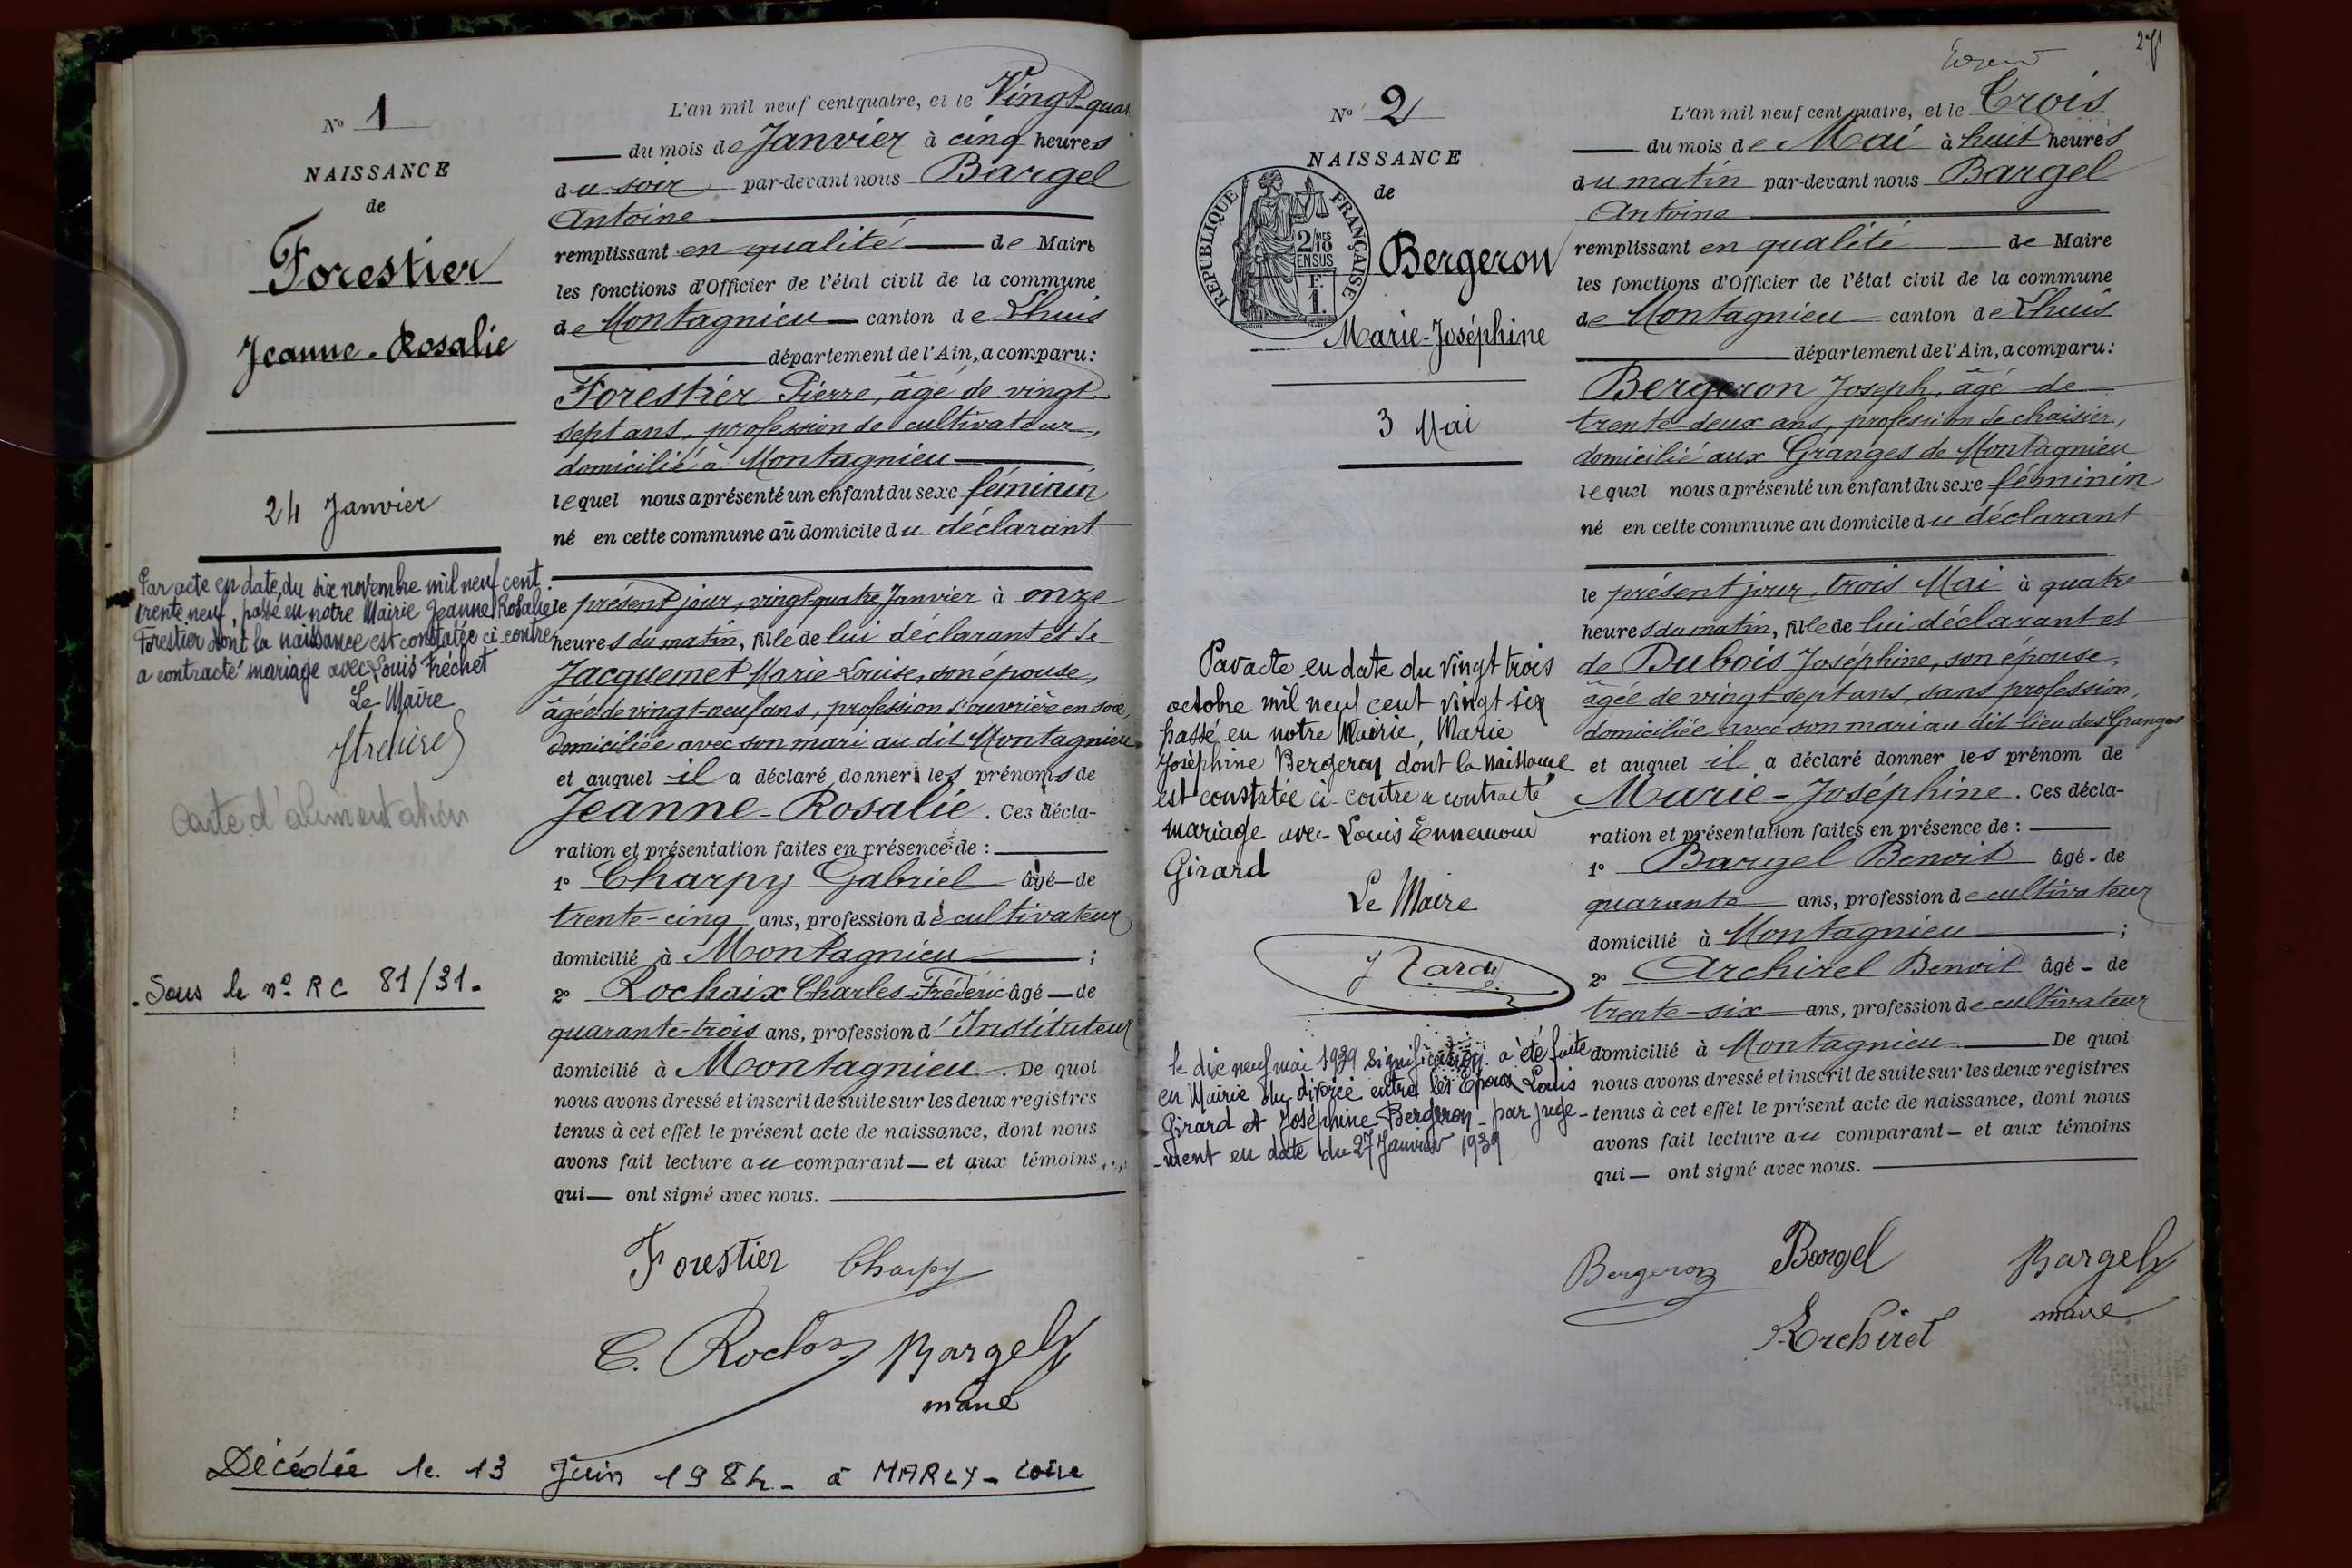 No 1
NAISSANCE
de
Forestier
Jeanne-Rosalie
24 Janvier
Par acte en date du six novembre mil neuf cent
trente neuf, passé en notre Mairie Jeanne Rosalie
Forestier dont la naissance est constatée ci-contre
a contracté mariage avec Louis Fréchet
Le Maire
Carte d'alimentation
Sous le no RC 81/31.
L'an mil neuf cent quatre, et le Vingt-quat
du mois de Janvier à cinq heures
du soir par-devant nous Bargel
Antoine
remplissant en qualité de Maire
les fonctions d'Officier de l'état civil de la commune
de Montagnieu canton de Lhuis
département de l'Ain, a comparu:
Forestier Pierre, âgé de vingt-
sept ans, profession de cultivateur,
domicilié à Montagnieu
lequel nous a présenté un enfant du sexe féminin
né en cette commune au domicile du déclarant
le présent jour, vingt-quatre Janvier à onze
heures du matin, fille de lui déclarant et de
Jacquemet Marie-Louise, son épouse,
âgée de vingt-neuf ans, profession d'ouvrière en soie,
domiciliée avec son mari au dit Montagnieu
et auquel il a déclaré donner les prénoms de
Jeanne-Rosalie. Ces décla-
ration et présentation faites en présence de:
1o Charpy Gabriel âgé de
trente-cinq ans, profession de cultivateur
domicilié à Montagnieu;
2o Rochaix Charles Fréderic âgé de
quarante-trois ans, profession d'Instituteur
domicilié à Montagnieu. De quoi
nous avons dressé et inscrit de suite sur les deux registres
tenus à cet effet le présent acte de naissance, dont nous
avons fait lecture au comparant et aux témoins
qui ont signé avec nous.
Forestier Charpy
C. Rochaix Bargel
maire
Décédée le 13 Juin 1984 - à MARLY - Loire
271
No 2
NAISSANCE
de
REPUBLIQUE FRANÇAISE
2/10 MES
EN SUS
F.
1.
Bergeron
Marie-Joséphine
3 Mai
Par acte en date du vingt trois
octobre mil neuf cent vingt six
passé en notre Mairie, Marie
Joséphine Bergeron dont la naissance
est constatée ci-contre a contracté
mariage avec Louis Ennemond
Girard
Le Maire
le dix neuf mai 1939 signification a été faite
en Mairie du divorce entre les Epoux Louis
Girard et Joséphine Bergeron - par juge-
-ment en date du 27 Janvier 1939
L'an mil neuf cent quatre, et le Trois
du mois de Mai à huit heures
du matin par-devant nous Bargel
Antoine
remplissant en qualité de Maire
les fonctions d'Officier de l'état civil de la commune
de Montagnieu canton de Lhuis
département de l'Ain, a comparu:
Bergeron Joseph, âgé de
trente-deux ans, profession de chaisier,
domicilié aux Granges de Montagnieu
lequel nous a présenté un enfant du sexe féminin
né en cette commune au domicile du déclarant
le présent jour, trois Mai à quatre
heures du matin, fille de lui déclarant et
de Dubois Joséphine, son épouse,
âgée de vingt-sept ans, sans profession,
domiciliée avec son mari au dit lieu des Granges
et auquel il a déclaré donner les prénom de
Marie-Joséphine. Ces décla-
ration et présentation faites en présence de:
1o Bargel Benoit âgé de
quarante ans, profession de cultivateur
domicilié à Montagnieu;
2o Archirel Benoit âgé de
trente-six ans, profession de cultivateur
domicilié à Montagnieu De quoi
nous avons dressé et inscrit de suite sur les deux registres
tenus à cet effet le présent acte de naissance, dont nous
avons fait lecture au comparant et aux témoins
qui ont signé avec nous.
Bergeron Bargel Bargel
Archirel maire